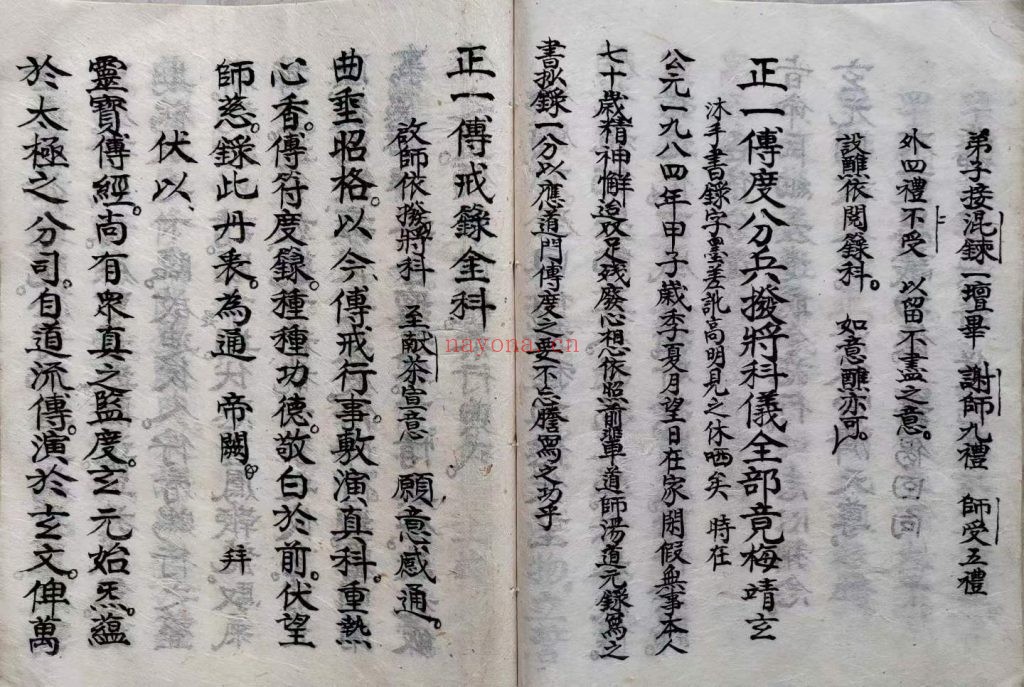 弟子接混鍊一壇畢 謝師九禮 師受五禮
外四禮不受 以留不盡之意。
設醮依閱籙科。 如意醮亦可。
正一傳度分兵撥將科儀全部竟梅晴玄
沐手書錄字墨差訛高明見之休哂矣 時在
公元一九八四年甲子歲季夏月望一日在家閑假無事本人
七十歲精神懈迨双足残廢心想依照前輩道師湯道元錄寫之
書拟錄一分以應道門傳度之要不忘謄寫之功乎
正一傳戒錄全科
啟師依撥將科 至献茶宣意 願意感通。
曲垂昭格。以今、傳戒行事敷演真科。重熱
心香。傳符度錄。種種功德。敬白於前。伏望
師慈。錄此丹衷。為通 帝闕。 拜
伏以、
靈寶傳經。尚有眾真之監度。玄元始炁。蘊
於太極之分司。自道流傳。演於玄文俾萬
nayona.cn